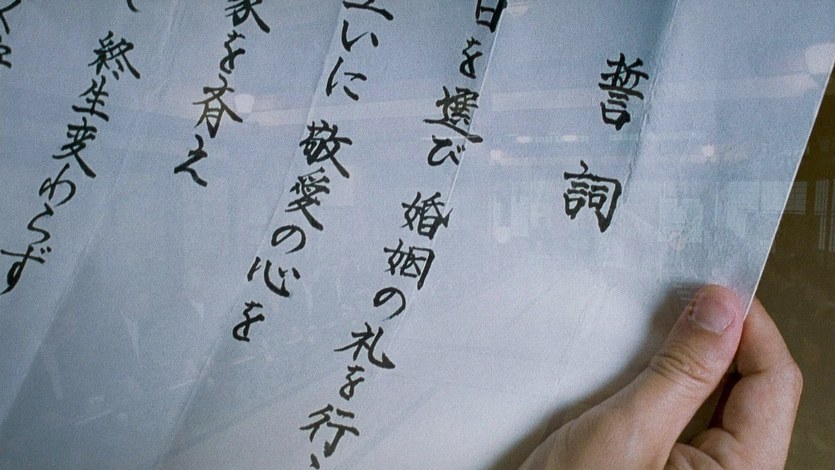 誓詞
日を選び婚姻の礼を行い
互いに敬愛の心を
家を斉え
終生変わらず